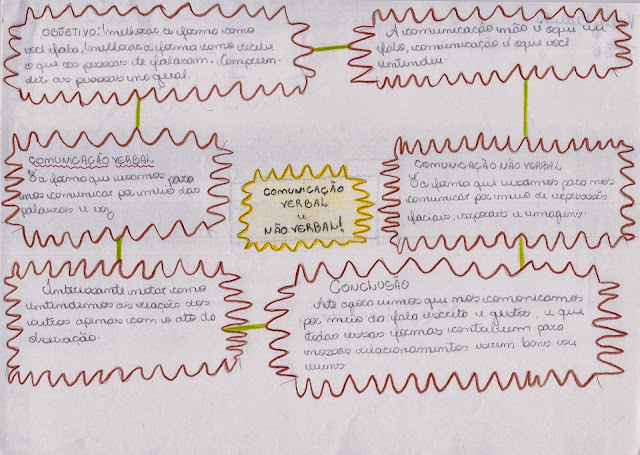 OBJETIVO: melhorar a forma como
você fala, melhorar a forma como recebe
o que as pessoas te falaram. Compreen-
der as pessoas no geral.
A comunicação não é o que eu
falo, comunicação é o que você
entendeu.
COMUNICAÇÃO VERBAL
É a forma que usamos para
nos comunicar por meio das
palavras e voz
COMUNICAÇÃO
VERBAL
e
NÃO VERBAL!
COMUNICAÇÃO NÃO VERBAL
É a forma que usamos para nos
comunicar por meio de expressões
faciais, corporais e imagens.
Interessante notar como
entendemos as reação dos
outros apenas com o ato da
observação.
CONCLUSÃO
Até agora vimos que nos comonicamos
por meio da fala escrita e gestos, e que
todas essas formas contribuem para
nossos relacionamentos serem bons ou
ruins